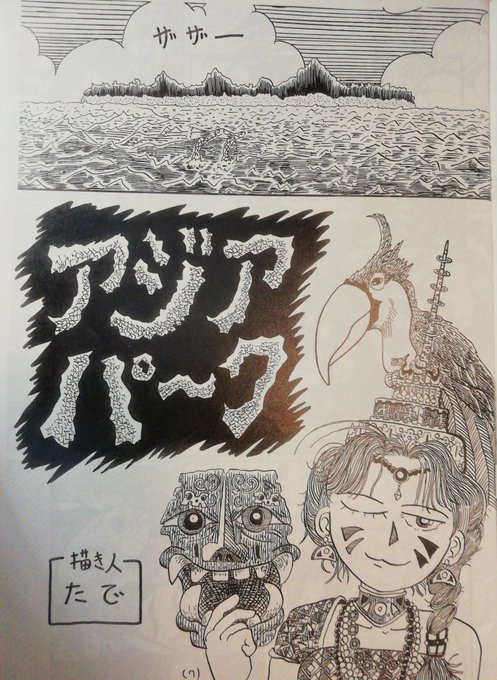 ザザー
アジア
パーク
描き人
たで
(7)